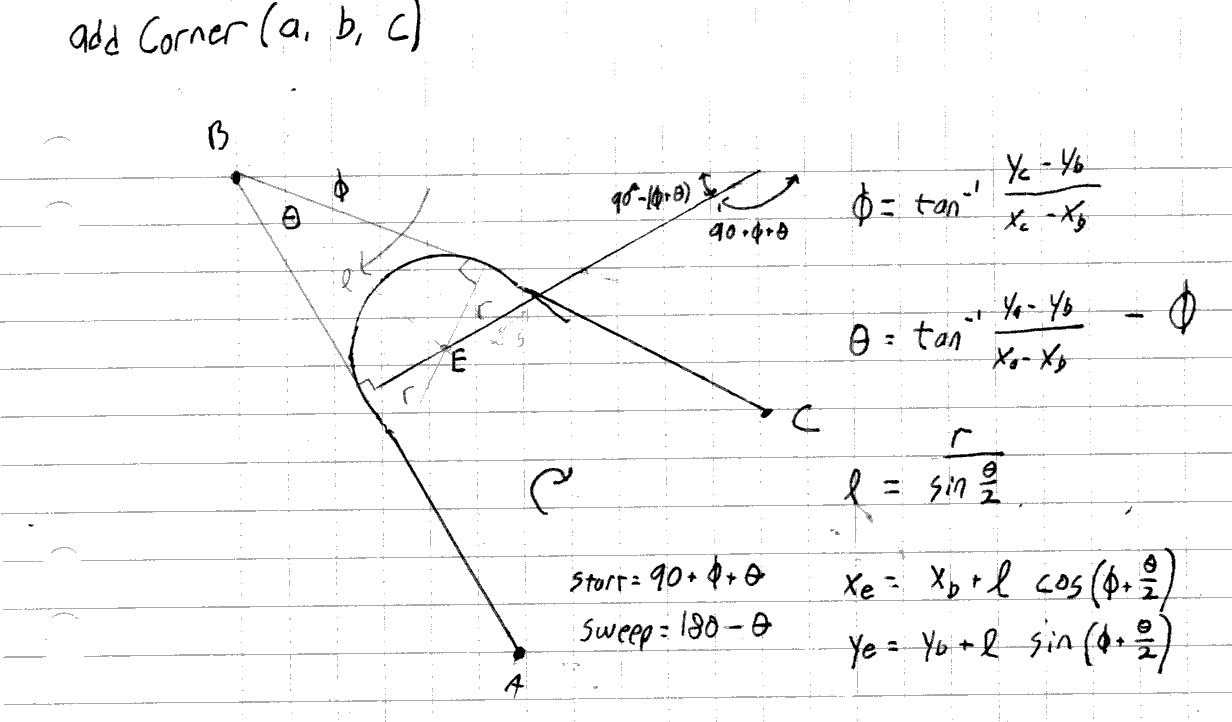 add Corner (a, b, c)
B
ϕ
θ
l
90°-(ϕ+θ)
90+ϕ+θ
r
E
r
C
A
start = 90 + ϕ + θ
sweep = 180 - θ
ϕ = tan⁻¹ (y_c - y_b) / (x_c - x_b)
θ = tan⁻¹ (y_a - y_b) / (x_a - x_b) - ϕ
l = r / sin θ/2
x_e = x_b + l cos(ϕ + θ/2)
y_e = y_b + l sin(ϕ + θ/2)